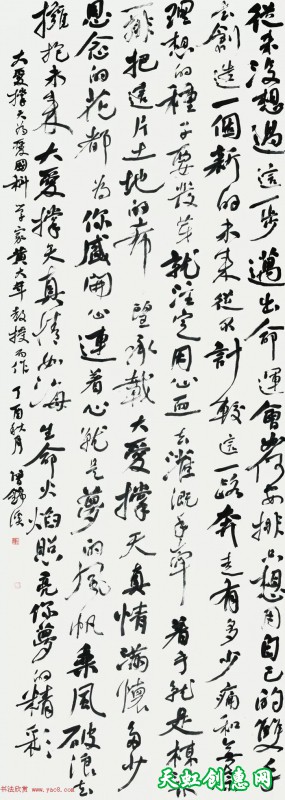 從来没想過這一步邁出命運會如何安排只想用自己的雙手
去創造一個新的未来從不計較這一路奔走有多少痛和無奈
理想的種子要發芽就注定用心血去灌溉手牽着手就是棟樑
一排把這片土地的希望承載大愛撑天真情满懷多少
思念的花都為你盛開心連着心就是夢的風帆乘風破浪去
擁抱未来大愛撑天真情如海生命火焰照亮你夢的精彩
大愛撑天為愛國科学家黄大年教授而作 丁酉秋月
书法欣赏
www.yac8.com
天虹创意网